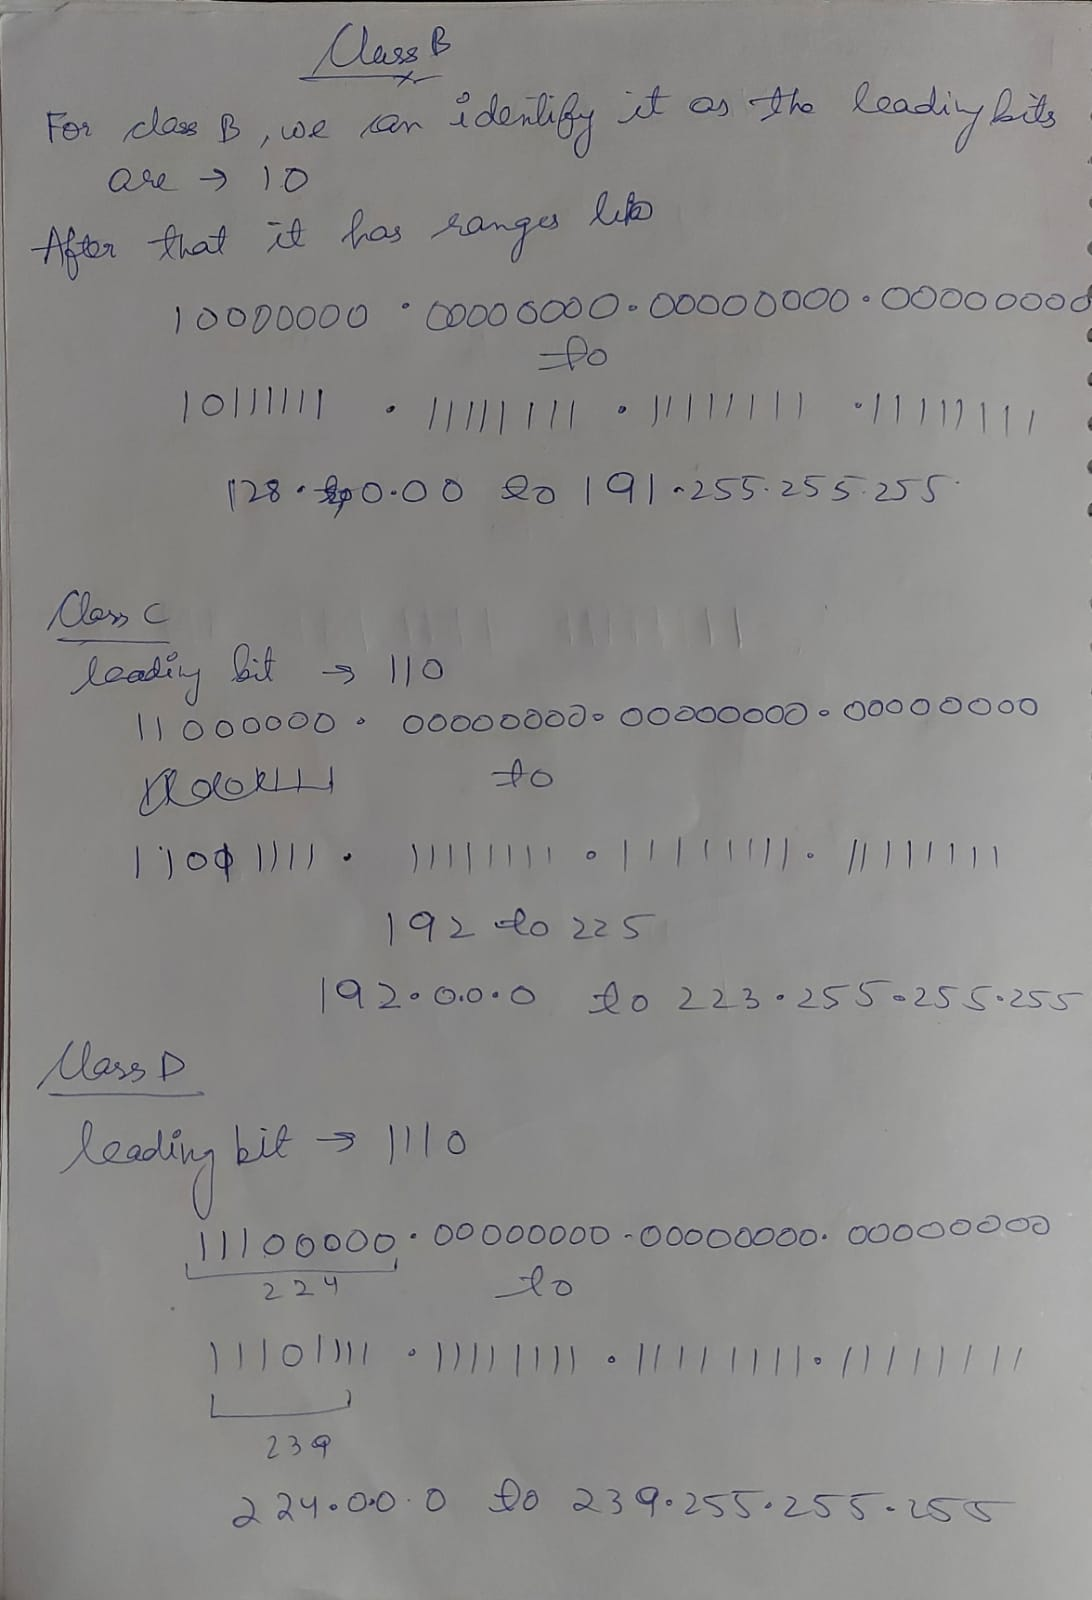 Class B
For class B, we can identify it as the leading bits
are → 10
After that it has ranges like
10000000 . 00000000 . 00000000 . 00000000
to
10111111 . 11111111 . 11111111 . 11111111
128 . 0.00 to 191.255.255.255
Class C
leading bit → 110
11000000 . 00000000 . 00000000 . 00000000
to
11011111 . 11111111 . 11111111 . 11111111
192 to 225
192.0.0.0 to 223.255.255.255
Class D
leading bit → 1110
11100000 . 00000000 . 00000000 . 00000000
224 to
11101111 . 11111111 . 11111111 . 11111111
239
224.0.0.0 to 239.255.255.255